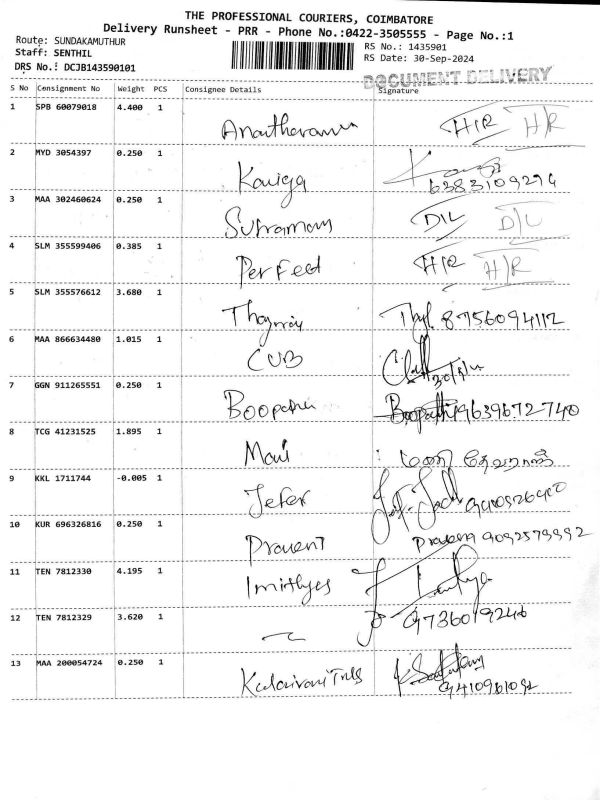 THE PROFESSIONAL COURIERS, COIMBATORE
Delivery Runsheet - PRR - Phone No.:0422-3505555 - Page No.:1
Route: SUNDAKAMUTHUR
Staff: SENTHIL
DRS No.: DCJB143590101
RS No.: 1435901
RS Date: 30-Sep-2024
DOCUMENT DELIVERY
S No Consignment No Weight PCS Consignee Details Signature
1 SPB 60079018 4.400 1 H/R H/R
2 MYD 3054397 0.250 1 Kaviya 6383109294
3 MAA 302460624 0.250 1 D/L D/L
4 SLM 355599406 0.385 1 Perfect H/R H/R
5 SLM 355576612 3.680 1 8756094112
6 MAA 866634480 1.015 1 CUB
7 GGN 911265551 0.250 1 Boopathi Boopathi 9639672740
8 TCG 41231525 1.895 1 Mani : மணி
9 KKL 1711744 -0.005 1
10 KUR 696326816 0.250 1 Pravent Praveen 9092579992
11 TEN 7812330 4.195 1
12 TEN 7812329 3.620 1 9736019246
13 MAA 200054724 0.250 1